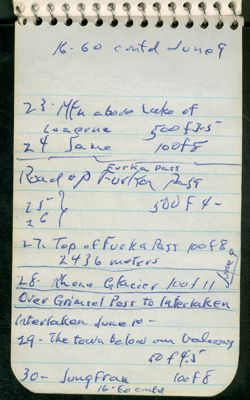 16-60 contd June 9
23- Mtn above Lake of
Lucerne 500 f 3-5
24 Same 100 f 8
Furka pass
Road up Furka Pass
25
26 } 500 f 4-
27- Top of Furka Pass 100 f 8
2436 meters
June 9
28- Rhone Glacier 100 f 11
Over Grimsel Pass to Interlaken
Interlaken June 10-
29- The town below our balcony
50 f 4.5
30- Jungfrau 100 f 8
16-60 contd